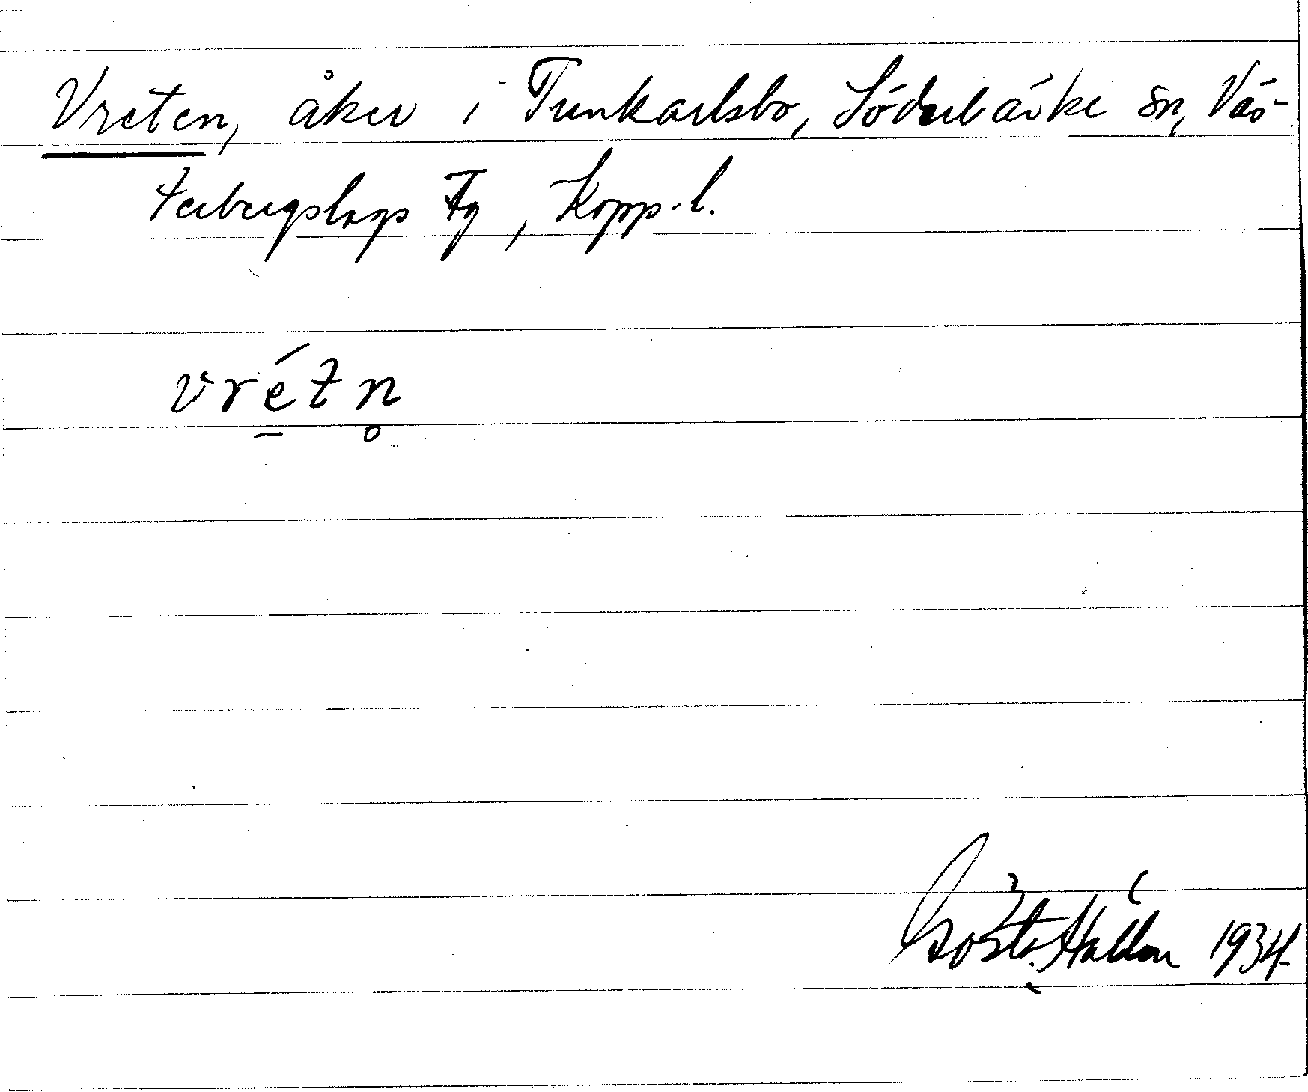 Vreten, åker i Tunkarlsbo, Söderbärke sn, Väs-
terbergslags Fg, Kopp. l.
vrétn̥
1934